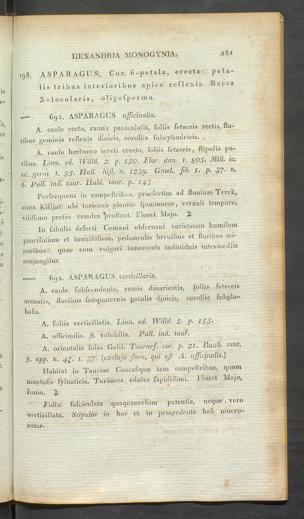 HEXANDRIA MONOGYNIA. 281
198. ASPARAGUS. Cor. 6-petala, erecta: peta-
lis tribus interioribus apice reflexis. Bacca
3-locularis, oligosperma.
— 691. ASPARAGUS officinalis.
A. caule recto, ramis paniculatis, foliis setaceis rectis, flo-
ribus geminis reflexis dioicis, corollis subcylindricis.
A. caule herbaceo tereti erecto, foliis setaceis, stipulis pa-
ribus. Linn. ed. Willd. 2. p. 150. Flor. dan. t. 805. Mill. ic.
ed. germ. t. 55. Hall. hist. n. 1239. Gmel. sib. 1. p. 37. n.
6. Pall. ind. taur. Habl. taur. p. 147.
Perfrequens in campestribus, praesertim ad flumen Terek,
circa Kisljar: ubi turiones plantae spontaneae, vernali tempore,
vilissimo pretio venales prostant. Floret Majo. ♃
In sabulis deserti Cumani observavi varietatem humilem
paucifoliam et brevifoliam, pedunculis brevibus et floribus mi-
noribus: quae cum vulgari innumeris individuis intermediis
conjungitur
— 692. ASPARAGUS verticillaris.
A. caule subscandente, ramis divaricatis, foliis setaceis
arcuatis, floribus subquaternis patulis dioicis, corollis subglo-
bosis.
A. foliis verticillatis. Linn. ed. Willd. 2. p. 155.
A. officinalis. β. volubilis. Pall. ind. taur.
A. orientalis folio Galii. Tournef. cor. p. 21. Buxb. cent.
5. app. n. 47. t. 37. (excluso flore, qui est A. officinalis.)
Habitat in Tauriae Caucasique tam campestribus, quam
montosis sylvaticis. Turiones edules sapidissimi. Floret Majo,
Junio. ♃
Folia fasciculata quaquaversum patentia, neque vero
verticillata. Stipulae in hoc et in praecedente basi mucro-
natae.